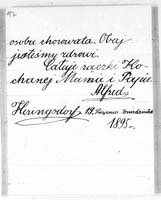 osobę chorowała. Obaj
jesteśmy zdrowi.
Całuję rączki Ko-
chanej Mamie i Papie
Alfreds
Heringsdorf
1895.